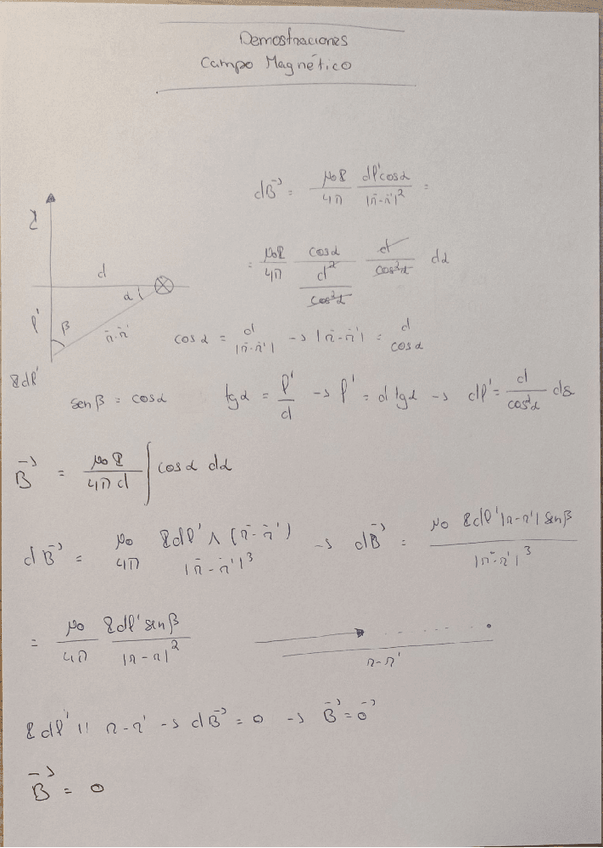 Demostraciones
Campo Magnético
dB⃗ = μ₀I/4π · dl' cosα / |r̄-r̄'|² =
= μ₀I/4π · cosα / (d²/cos²α) · d/cos²α dα
I
d
α
l'
β
r̄-r̄'
I dl'
cosα = d/|r̄-r̄'| → |r̄-r̄'| = d/cosα
senβ = cosα tgα = l'/d → l' = d tgα → dl' = d/cos²α dα
B⃗ = μ₀I/4πd ∫ cosα dα
dB⃗ = μ₀/4π · I dl' ∧ (r̄-r̄') / |r̄-r̄'|³ → dB⃗ = μ₀ I dl' |r-r'| senβ / |r̄-r̄'|³
= μ₀/4π · I dl' senβ / |r-r|²
r-r'
I dl' || r-r' → dB⃗ = 0 → B⃗ = 0⃗
B⃗ = 0